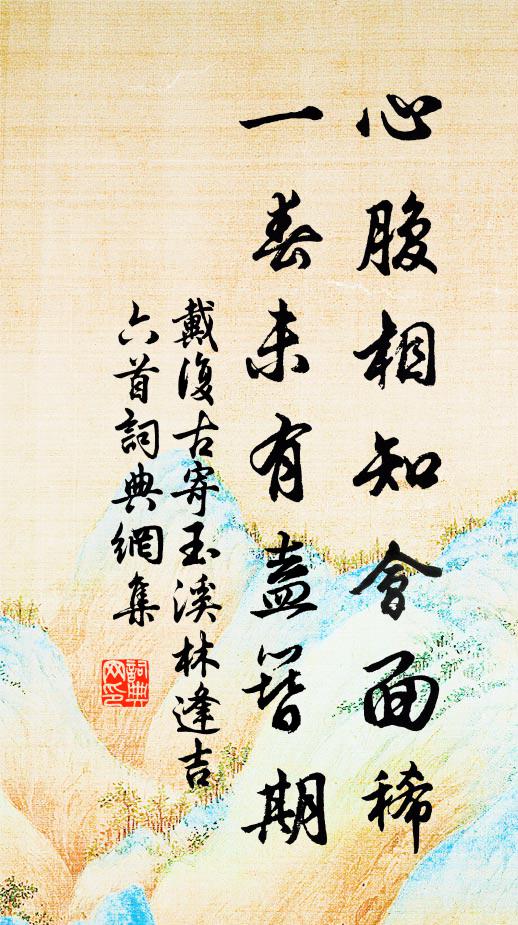 心腹相知會面稀
一春未有盍簪期
戴復古寄玉溪林逢吉
六首詞典網集
詞典
网印